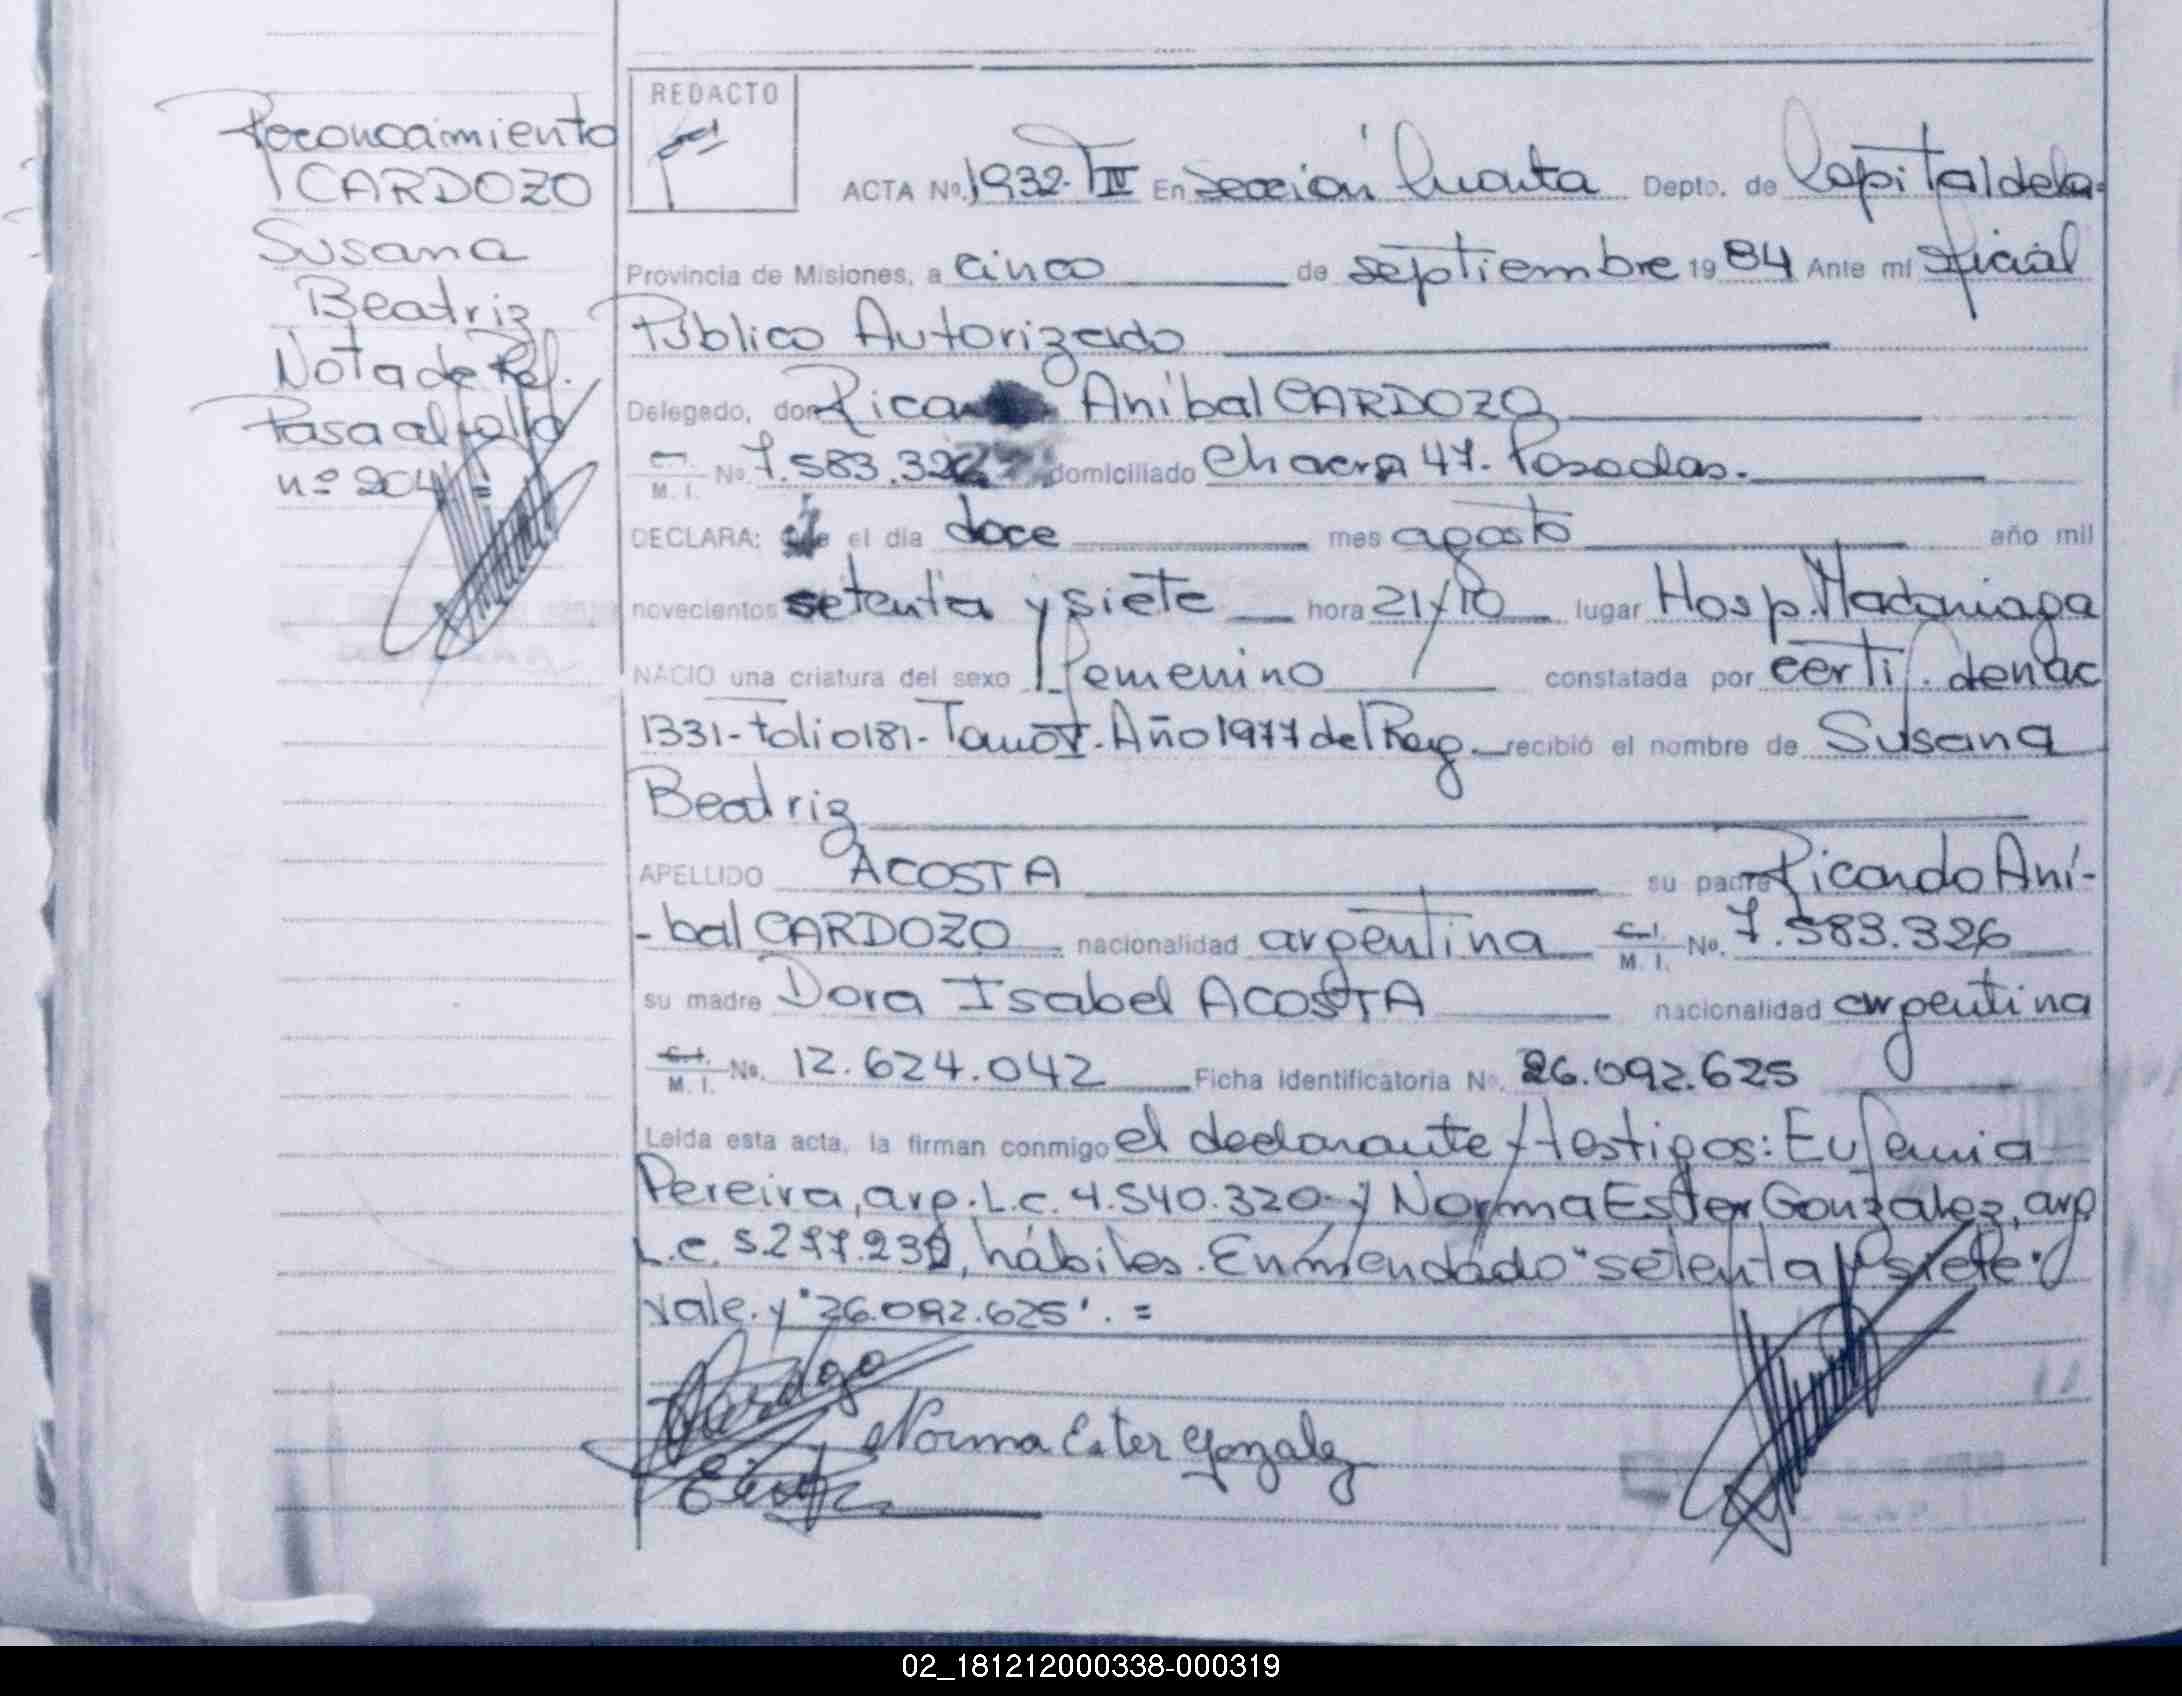 Reconocimiento
CARDOZO
Susana
Beatriz
Nota de Ref.
Pasa al folio
nº 204 =
REDACTO
ACTA Nº. 1932. TIII En Sección Cuarta Depto. de Capital de la
Provincia de Misiones, a cinco de septiembre 1984 Ante mi Oficial
Público Autorizado
Delegado, don Ricardo Aníbal CARDOZO
C.I. M. I. Nº 7.583.326 domiciliado Chacra 47. Posadas.
DECLARA: el día doce mes agosto año mil
novecientos setenta y siete hora 21 y 10 lugar Hosp. Madariaga
NACIO una criatura del sexo femenino constatada por certif. de nac
1331- Folio 181- Tomo V. Año 1977 del Reg. recibió el nombre de Susana
Beatriz
APELLIDO ACOSTA su padre Ricardo Aní-
-bal CARDOZO nacionalidad argentina C.I. M. I. Nº. 7.583.326
su madre Dora Isabel ACOSTA nacionalidad argentina
C.I. M. I. Nº. 12.624.042 Ficha Identificatoria Nº. 26.092.625
Leída esta acta, la firman conmigo el declarante y testigos: Eufemia
Pereira, arg. L.c. 4.540.320 y Norma Ester Gonzalez, arg
L.c. 5.277.232, hábiles. Enmendado "setenta y siete"
vale. y "26.092.625". =
Cardozo
Norma Ester Gonzalez
02_181212000338-000319